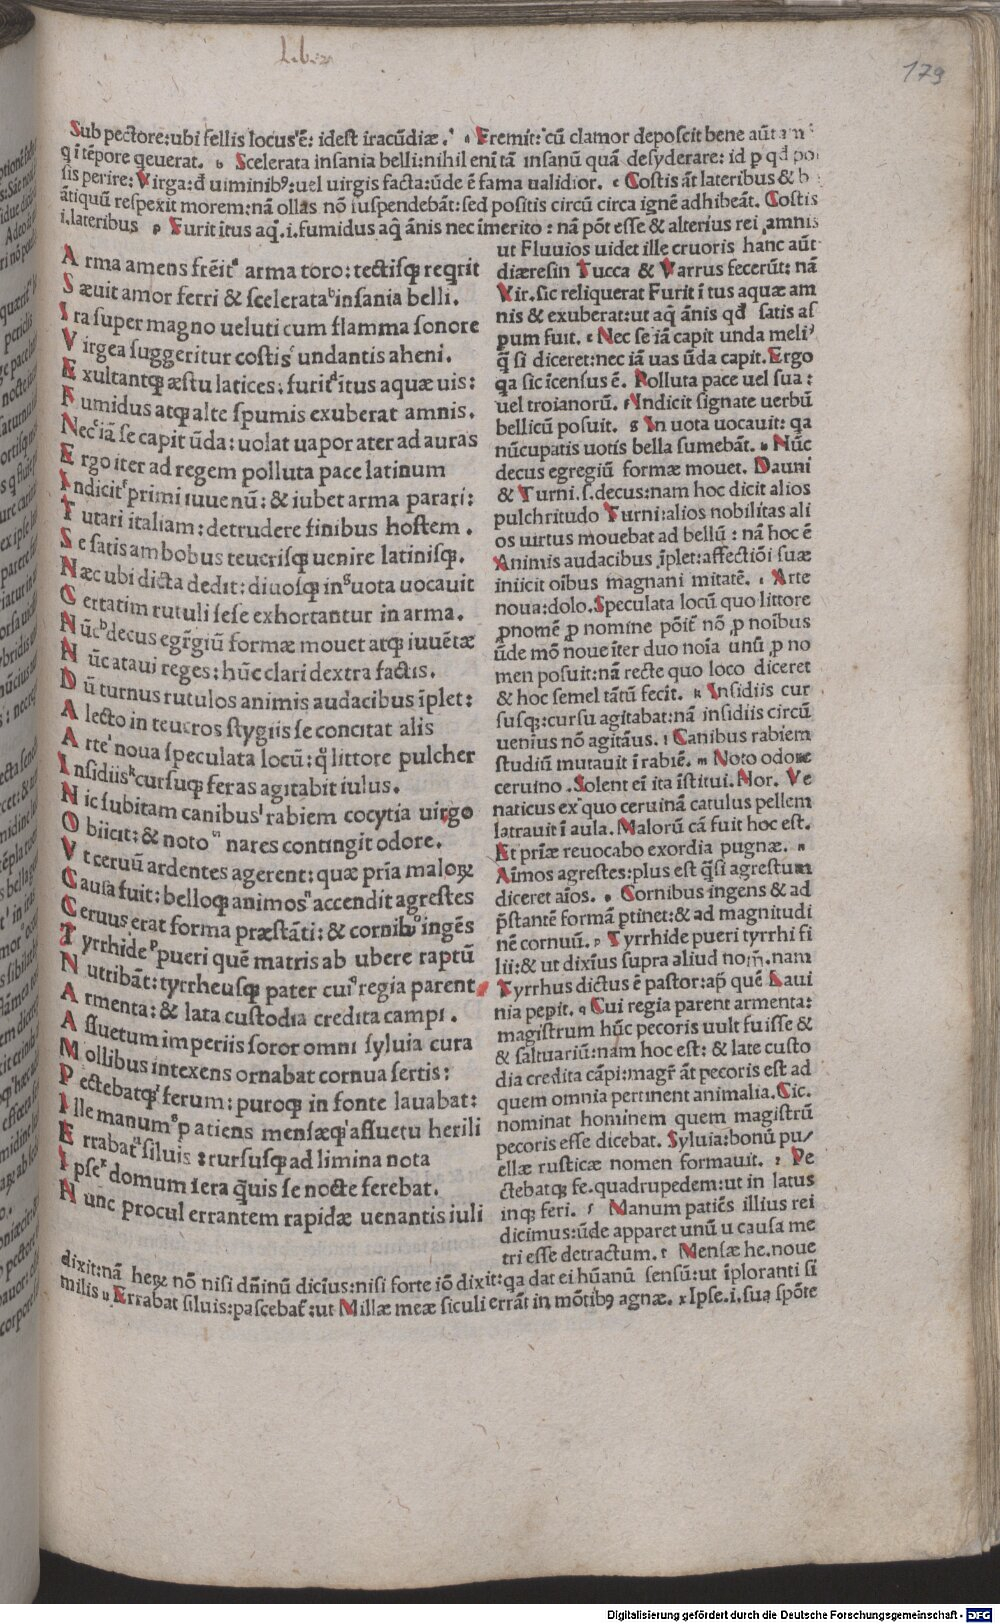 Lib.
179
Sub pectore:ubi fellis locus'ē: idest iracūdiæ. a Fremit: cū clamor deposcit bene aūt
q ī tēpore querat. b Scelerata insania belli:nihil eni tā insanū quā desyderare: id p qd po
sis perire: Virga:đ uiminibꝰ:uel uirgis facta:ūde ē fama ualidior. c Costis āt lateribus &
ātiquū respexit morem:nā ollas nō suspendebāt:sed positis circū circa ignē adhibeāt. Costis
i.lateribus Furit itus aq̄.i.fumidus aq̄ ānis nec īmerito : nā pōt esse & alterius rei amnis
Arma amens frēit arma toro: tectisqꝫ reqrit
Sæuit amor ferri & scelerata insania belli.
Ira super magno ueluti cum flamma sonore
Virgea suggeritur costis undantis aheni.
Exultantqꝫ æstu latices: furit itus aquæ uis:
Fumidus atqꝫ alte spumis exuberat amnis.
Nec iā se capit ūda: uolat uapor ater ad auras
Ergo iter ad regem polluta pace latinum
Indicit primi iuuenū: & iubet arma parari:
Tutari italiam: detrudere finibus hostem.
Se satis ambobus teucrisqꝫ uenire latinisqꝫ.
Næc ubi dicta dedit: diuosqꝫ in uota uocauit
Certatim rutuli sese exhortantur in arma.
Nūc decus egr̄giū formæ mouet atqꝫ iuuētæ
Nūc ataui reges: hūc clari dextra factis.
Dū turnus rutulos animis audacibus īplet:
Alecto in teucros stygiis se concitat alis
Arte noua speculata locū: q̊ littore pulcher
Insidiis cursuqꝫ feras agitabit iulus.
Nic subitam canibus rabiem cocytia uirgo
Obiicit: & noto nares contingit odore.
Vt ceruū ardentes agerent: quæ pria maloꝝ
Causa fuit: belloqꝫ animos accendit agrestes
Ceruus erat forma præstāti: & cornibꝰ ingēs
Tyrrhide pueri quē matris ab ubere raptū
Nutribāt: tyrrheusqꝫ pater cui regia parent
Armenta: & lata custodia credita campi.
Assuetum imperiis soror omni syluia cura
Mollibus intexens ornabat cornua sertis:
Pectebatqꝫ ferum: puroqꝫ in fonte lauabat:
Ille manum patiens mensæqꝫ assuetu herili
Errabat siluis : rursusqꝫ ad limina nota
Ipse domum sera q̄uis se nocte ferebat.
Nunc procul errantem rapidæ uenantis iuli
ut Fluuios uidet ille cruoris hanc aūt
diæresin Tucca & Varrus fecerūt: nā
Vir. sic reliquerat Furit ī tus aquæ am
nis & exuberat:ut aq̄ ānis qđ satis as
pum fuit. e Nec se iā capit unda meli
q̄ si diceret:nec iā uas ūda capit. Ergo
qa sic īcensus ē. Polluta pace uel sua:
uel troianorū. f Indicit signate uerbū
bellicū posuit. g In uota uocauit: qa
nūcupatis uotis bella sumebāt. h Nūc
decus egregiū formæ mouet. Dauni
& Turni.s.decus:nam hoc dicit alios
pulchritudo Turni:alios nobilitas ali
os uirtus mouebat ad bellū : nā hoc ē
Animis audacibus īplet:affectiōi suæ
iniicit oībus magnani mitatē. i Arte
noua:dolo. Speculata locū quo littore
ꝓnomē ꝓ nomine pōit nō ꝓ noībus
ūde mō noue īter duo noīa unū ꝓ no
men posuit:nā recte quo loco diceret
& hoc semel tātū fecit. k Insidiis cur
susqꝫ:cursu agitabat:nā insidiis circū
uenius nō agitāus. l Canibus rabiem
studiū mutauit ī rabiē. m Noto odore
ceruino. Solent ei ita īstitui. Nor. Ve
naticus ex quo ceruinā catulus pellem
latrauit ī aula. Malorū cā fuit hoc est.
Et priæ reuocabo exordia pugnæ. n
Aīmos agrestes:plus est q̄si agrestum
diceret aīos. o Cornibus ingens & ad
p̄stantē formā ptinet:& ad magnitudi
nē cornuū. p Tyrrhide pueri tyrrhi fi
lii:& ut dixius supra aliud nom̄.nam
Tyrrhus dictus ē pastor:ap̄ quē Laui
nia pepit. q Cui regia parent armenta:
magistrum hūc pecoris uult fuisse &
& saltuariū:nam hoc est: & late custo
dia credita cāpi:magr̄ āt pecoris est ad
quem omnia pertinent animalia. Cic.
nominat hominem quem magistrū
pecoris esse dicebat. Syluia:bonū pu/
ellæ rusticæ nomen formauit. r Pe
ctebatqꝫ fe.quadrupedem:ut in latus
inqꝫ feri. s Manum patiēs illius rei
dicimus:ūde apparet unū u causa me
tri esse detractum. t Mensæ he.noue
dixit:nā heꝝ nō nisi dn̄inū dicius:nisi forte iō dixit:qa dat ei hūanū sensū:ut īploranti si
milis u Errabat siluis:pascebat̄:ut Millæ meæ siculi errāt in mōtibꝰ agnæ. x Ipse.i.sua spōte
Digitalisierung gefördert durch die Deutsche Forschungsgemeinschaft - DFG